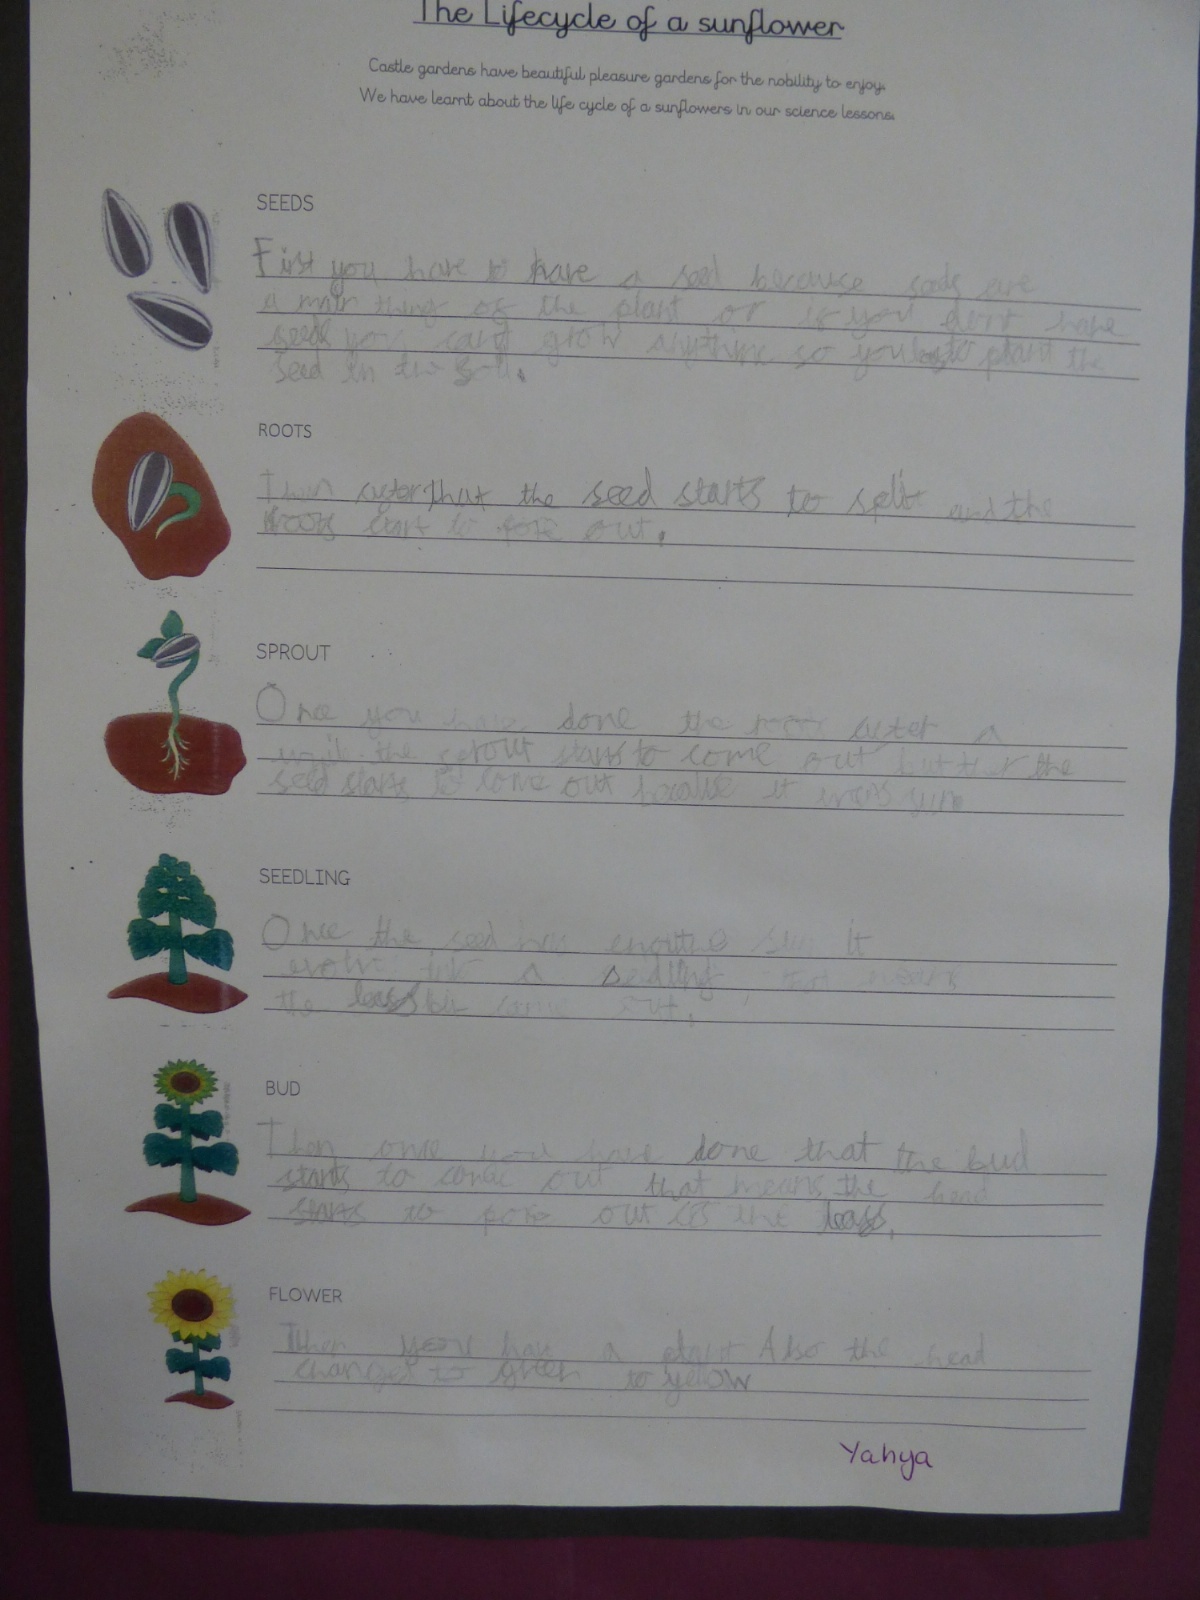 The Lifecycle of a sunflower
Castle gardens have beautiful pleasure gardens for the nobility to enjoy.
We have learnt about the life cycle of a sunflowers in our science lessons.
SEEDS
First you have to have a seed because seeds are
a main thing of the plant or if you dont have
seeds you cant grow anything so you to plant the
Seed in the
ROOTS
Then after that the seed starts to split and the
roots start to out.
SPROUT
Once you have done the roots after a
the starts to come out but the
seed starts to come out it sun
SEEDLING
Once the seed has sun it
a that means
the come out.
BUD
Then once you have done that the bud
starts to come out that means the head
starts to out the
FLOWER
Then you have a plant Also the head
changes to green to yellow
Yahya